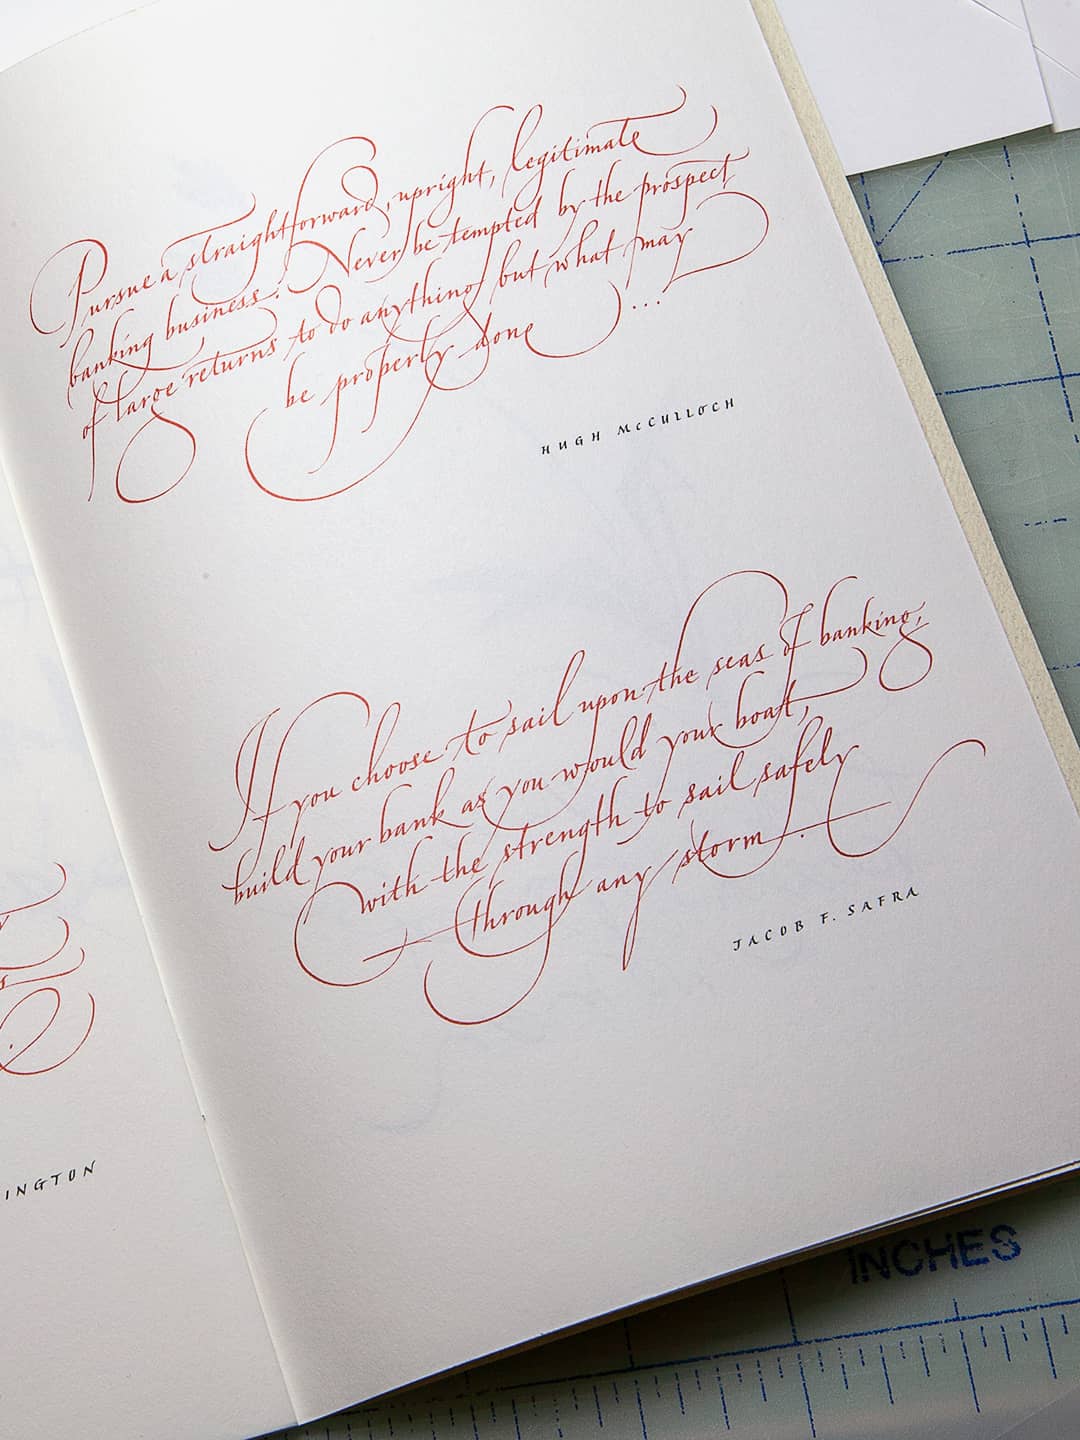 Pursue a straightforward, upright, legitimate
banking business. Never be tempted by the prospect
of large returns to do anything but what may
be properly done ...
HUGH McCULLOCH
If you choose to sail upon the seas of banking,
build your bank as you would your boat,
with the strength to sail safely
through any storm.
JACOB F. SAFRA
INGTON
INCHES